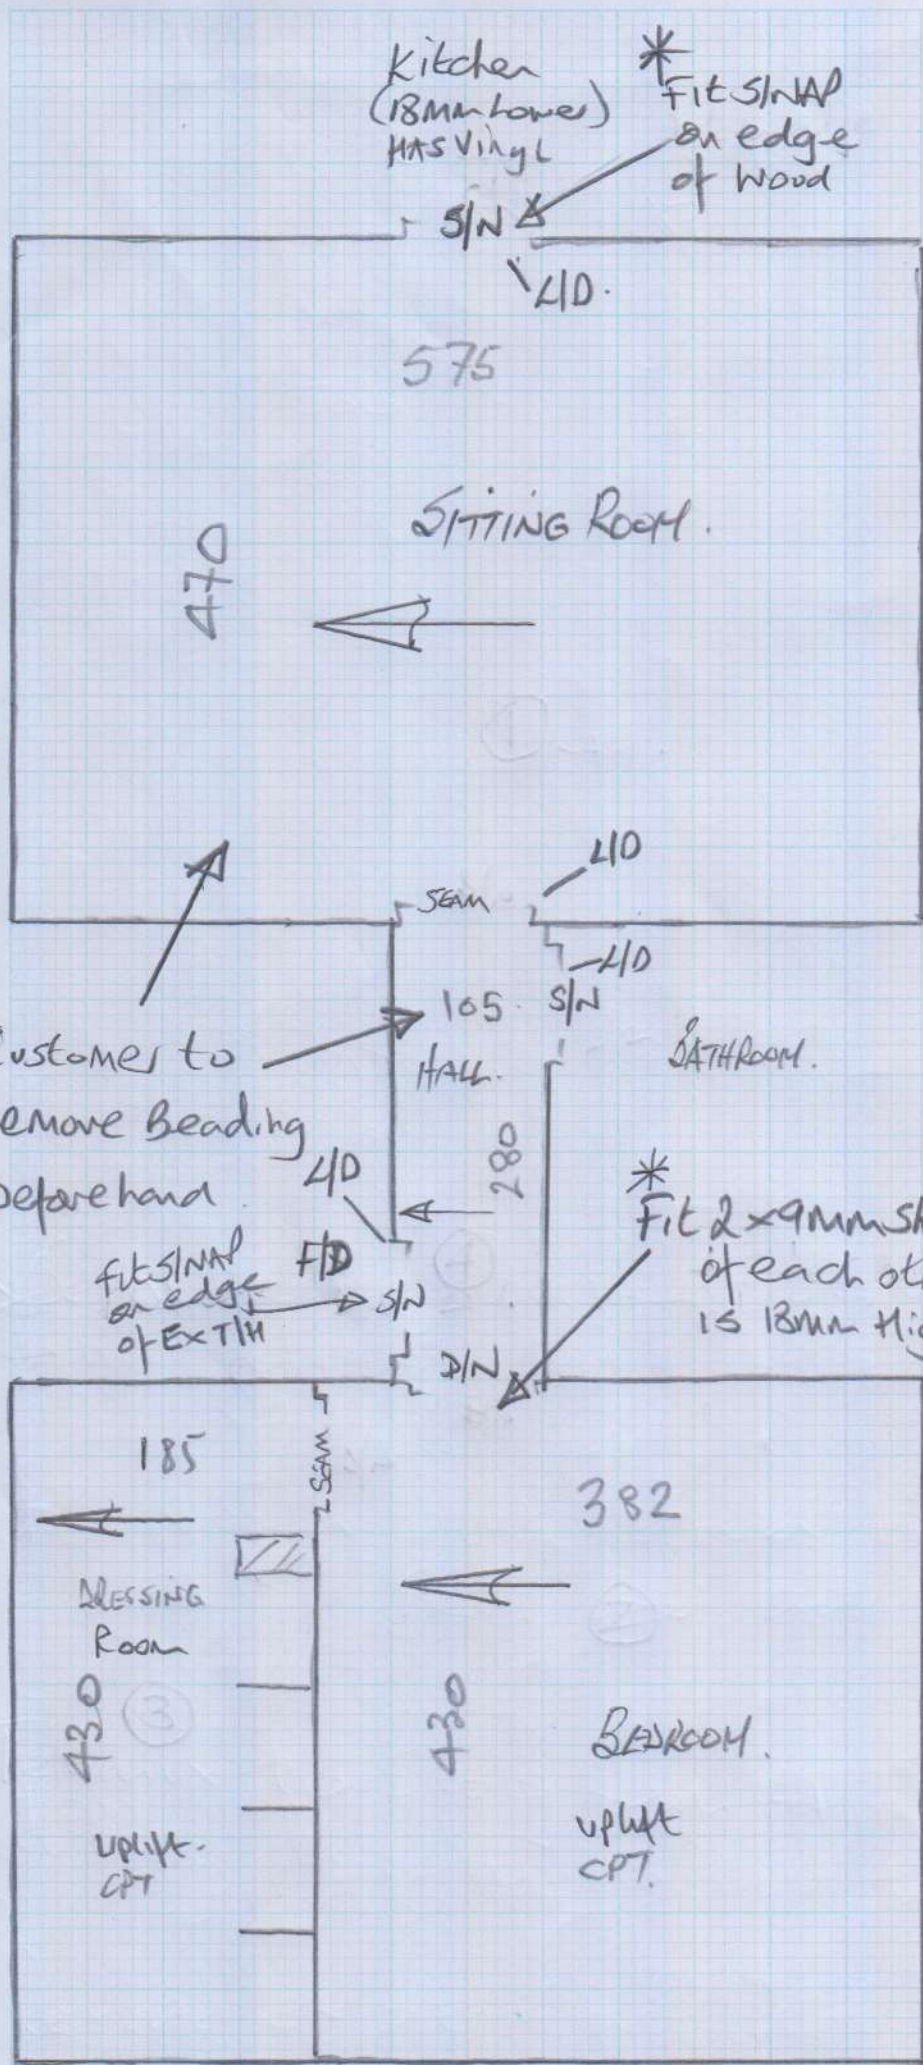 Kitchen
(18mm Lower)
HAS Vinyl
*
Fit S/NAP
on edge
of Wood
S/N
L/D.
575
SITTING ROOM.
470
1
L/D
SEAM
L/D
105. S/N
HALL.
BATHROOM.
Customer to
remove Beading
beforehand.
280
L/D
F/D
4
Fit S/NAP
on edge
of Ex T/H
S/N
*
Fit 2 x 9mm
of each
is 18mm
D/N
185
SEAM
382
DRESSING
Room
2
3
430
430
BEDROOM.
uplift.
CPT
uplift
CPT.